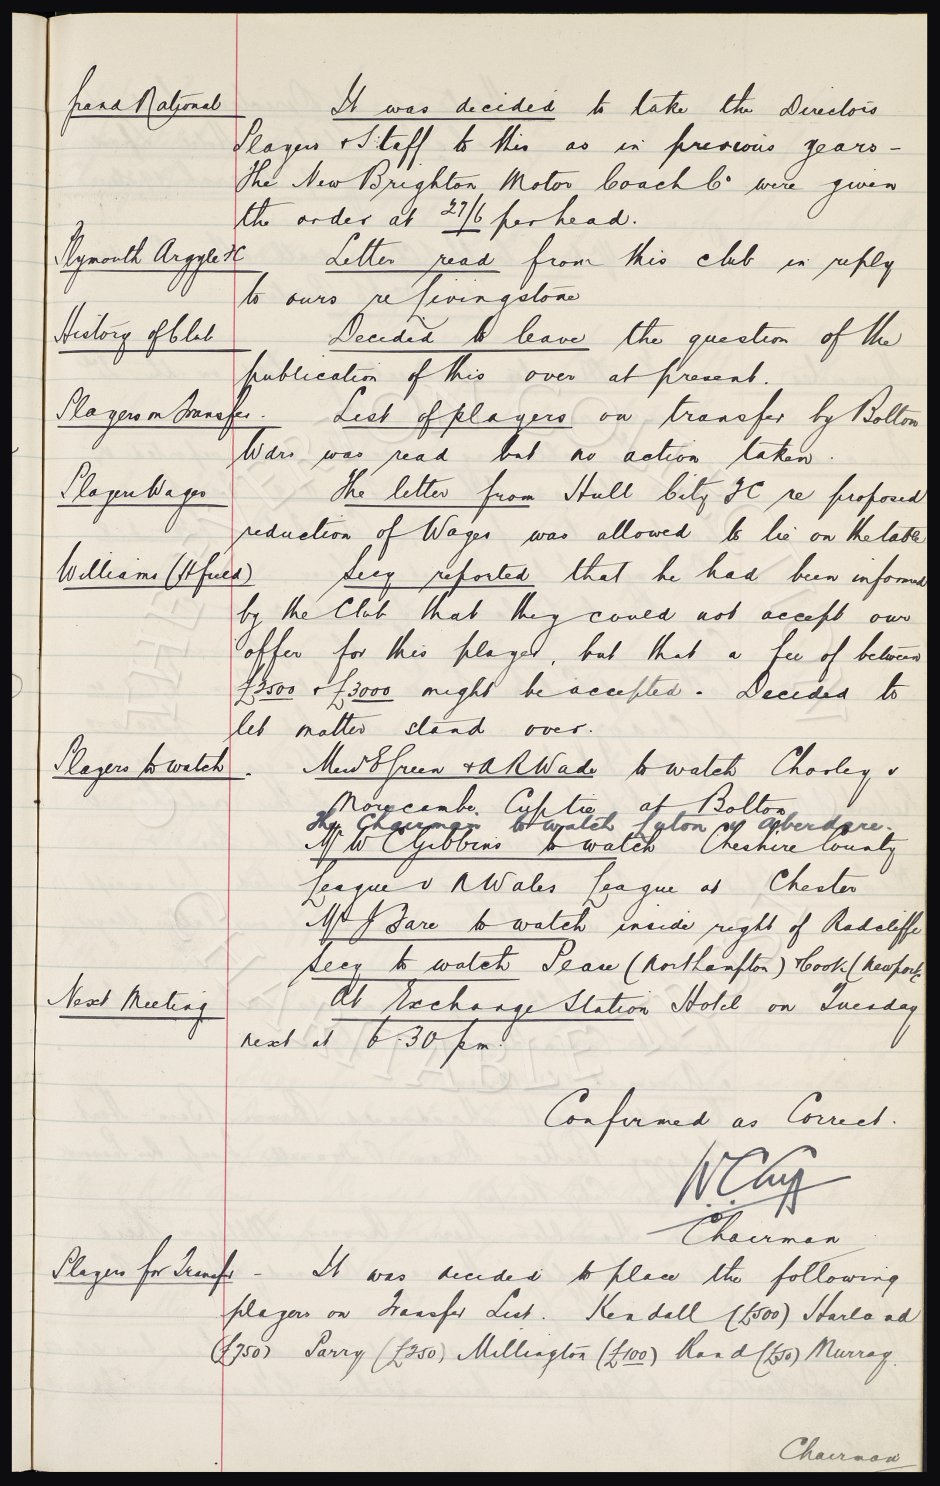 Grand National It was decided to take the Directors
Players & Staff to this as in previous years –
The New Brighton Motor Coach Co were given
the order at 27/6 per head.
Plymouth Argyle FC Letter read from this club in reply
to ours re Livingstone
History of Club Decided to leave the question of the
publication of this over at present.
Players on Transfer. List of players on transfer by Bolton
Wdrs was read but no action taken.
Players Wages The letter from Hull City FC re proposed
reduction of Wages was allowed to lie on the table
Williams (Hfield) Secy reported that he had been informed
by the Club that they could not accept our
offer for this player, but that a fee of between
£2500 & £3000 might be accepted. Decided to
let matter stand over.
Players to watch. Messrs E Green & A R Wade to watch Chorley v
Morecambe Cup tie at Bolton
The Chairman to watch Luton v Aberdare.
Mr W C Gibbins to watch Cheshire County
League v N Wales League at Chester
Mr J Sare to watch inside right of Radcliffe
Secy to watch Pease (Northampton) & Cook (Newport
Next Meeting At Exchange Station Hotel on Tuesday
next at 6.30 pm.
Confirmed as Correct.
W. C. Cuff
Chairman
Players for Transfer – It was decided to place the following
players on Transfer List. Kendall (£500) Harland
(£750) Parry (£250) Millington (£100) Rand (£50) Murray.
Chairman